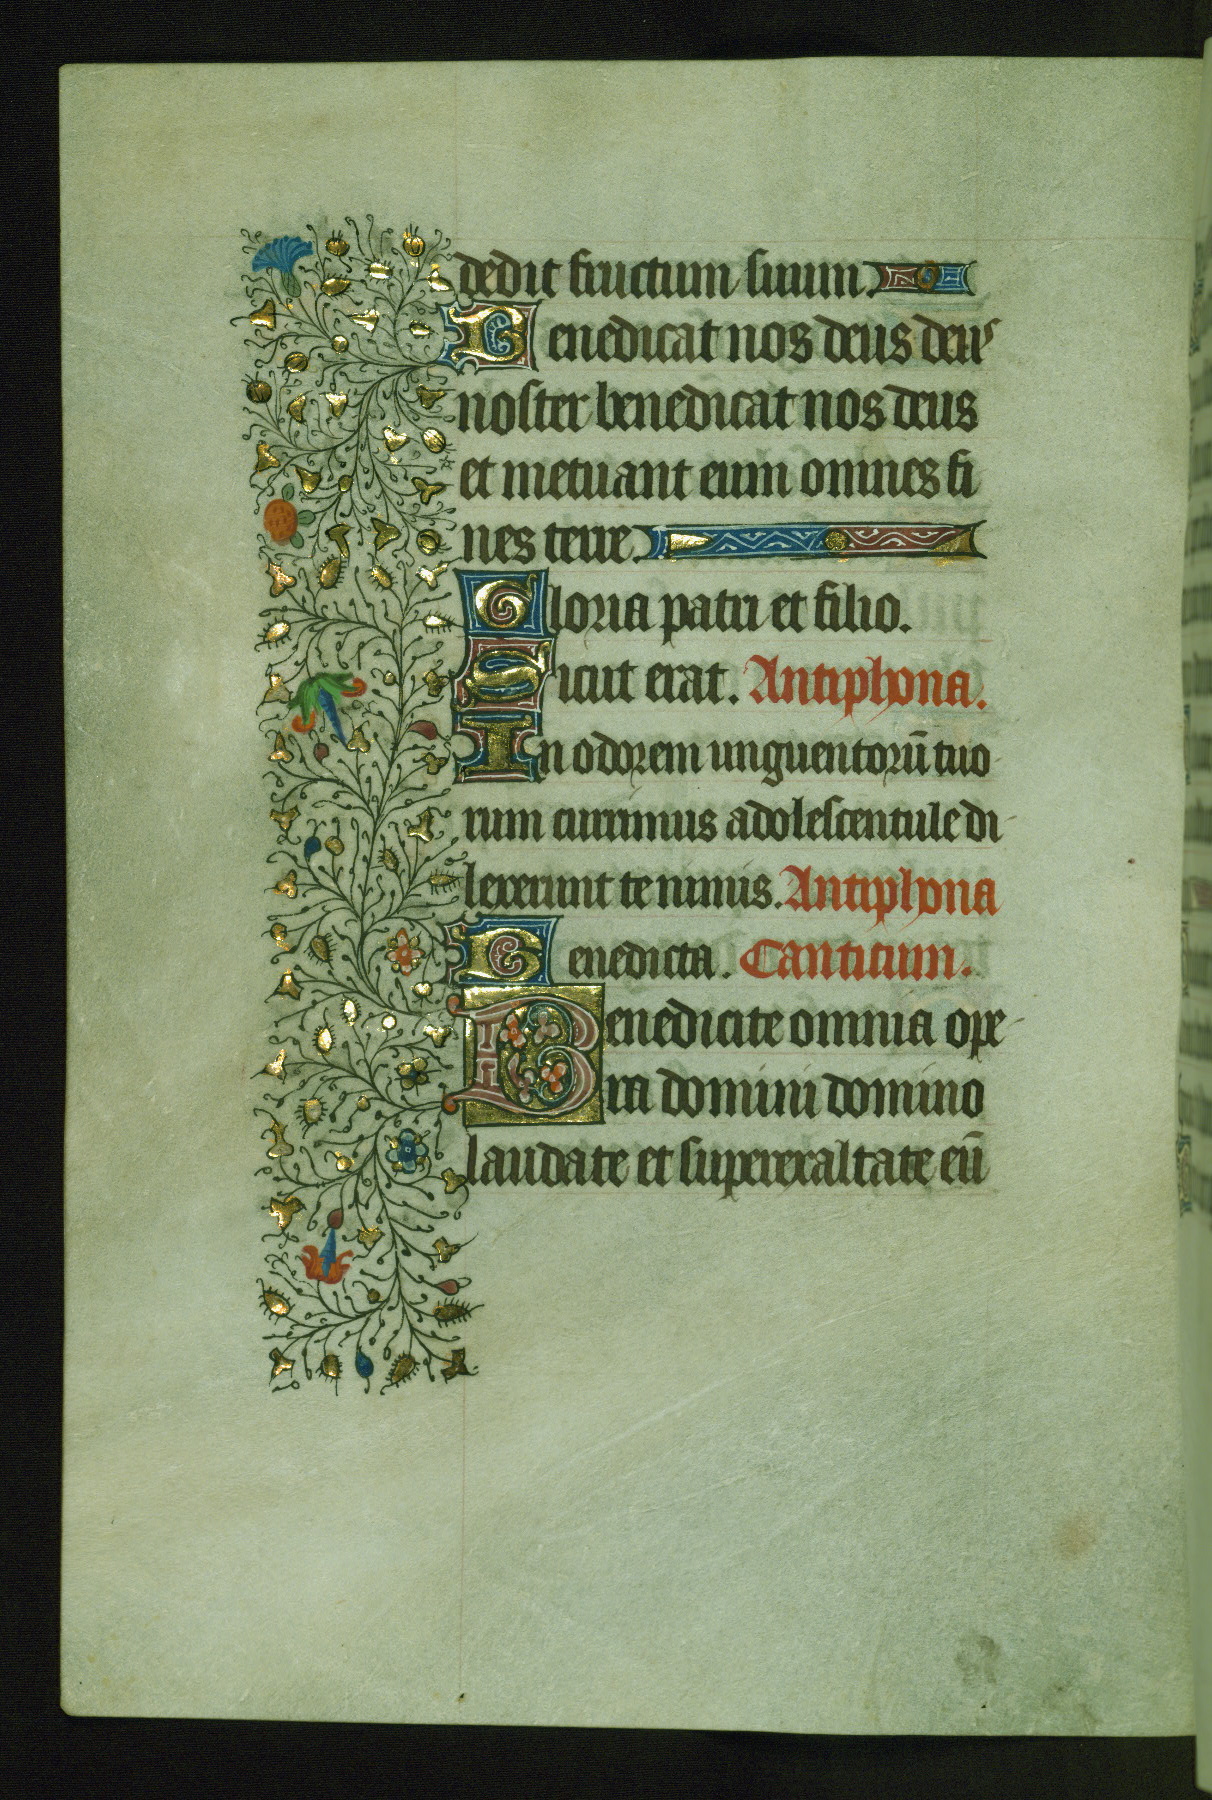 dedit fructum suum.
Benedicat nos deus deus
noster benedicat nos deus
et metuant eum omnes fi
nes terre.
Gloria patri et filio.
Sicut erat. Antiphona.
In odorem unguentorū tuo
rum currimus adolescentule di-
lexerunt te nimis. Antiphona
Benedicta. Canticum.
Benedicite omnia ope-
ra domini domino
laudate et superexaltate eū